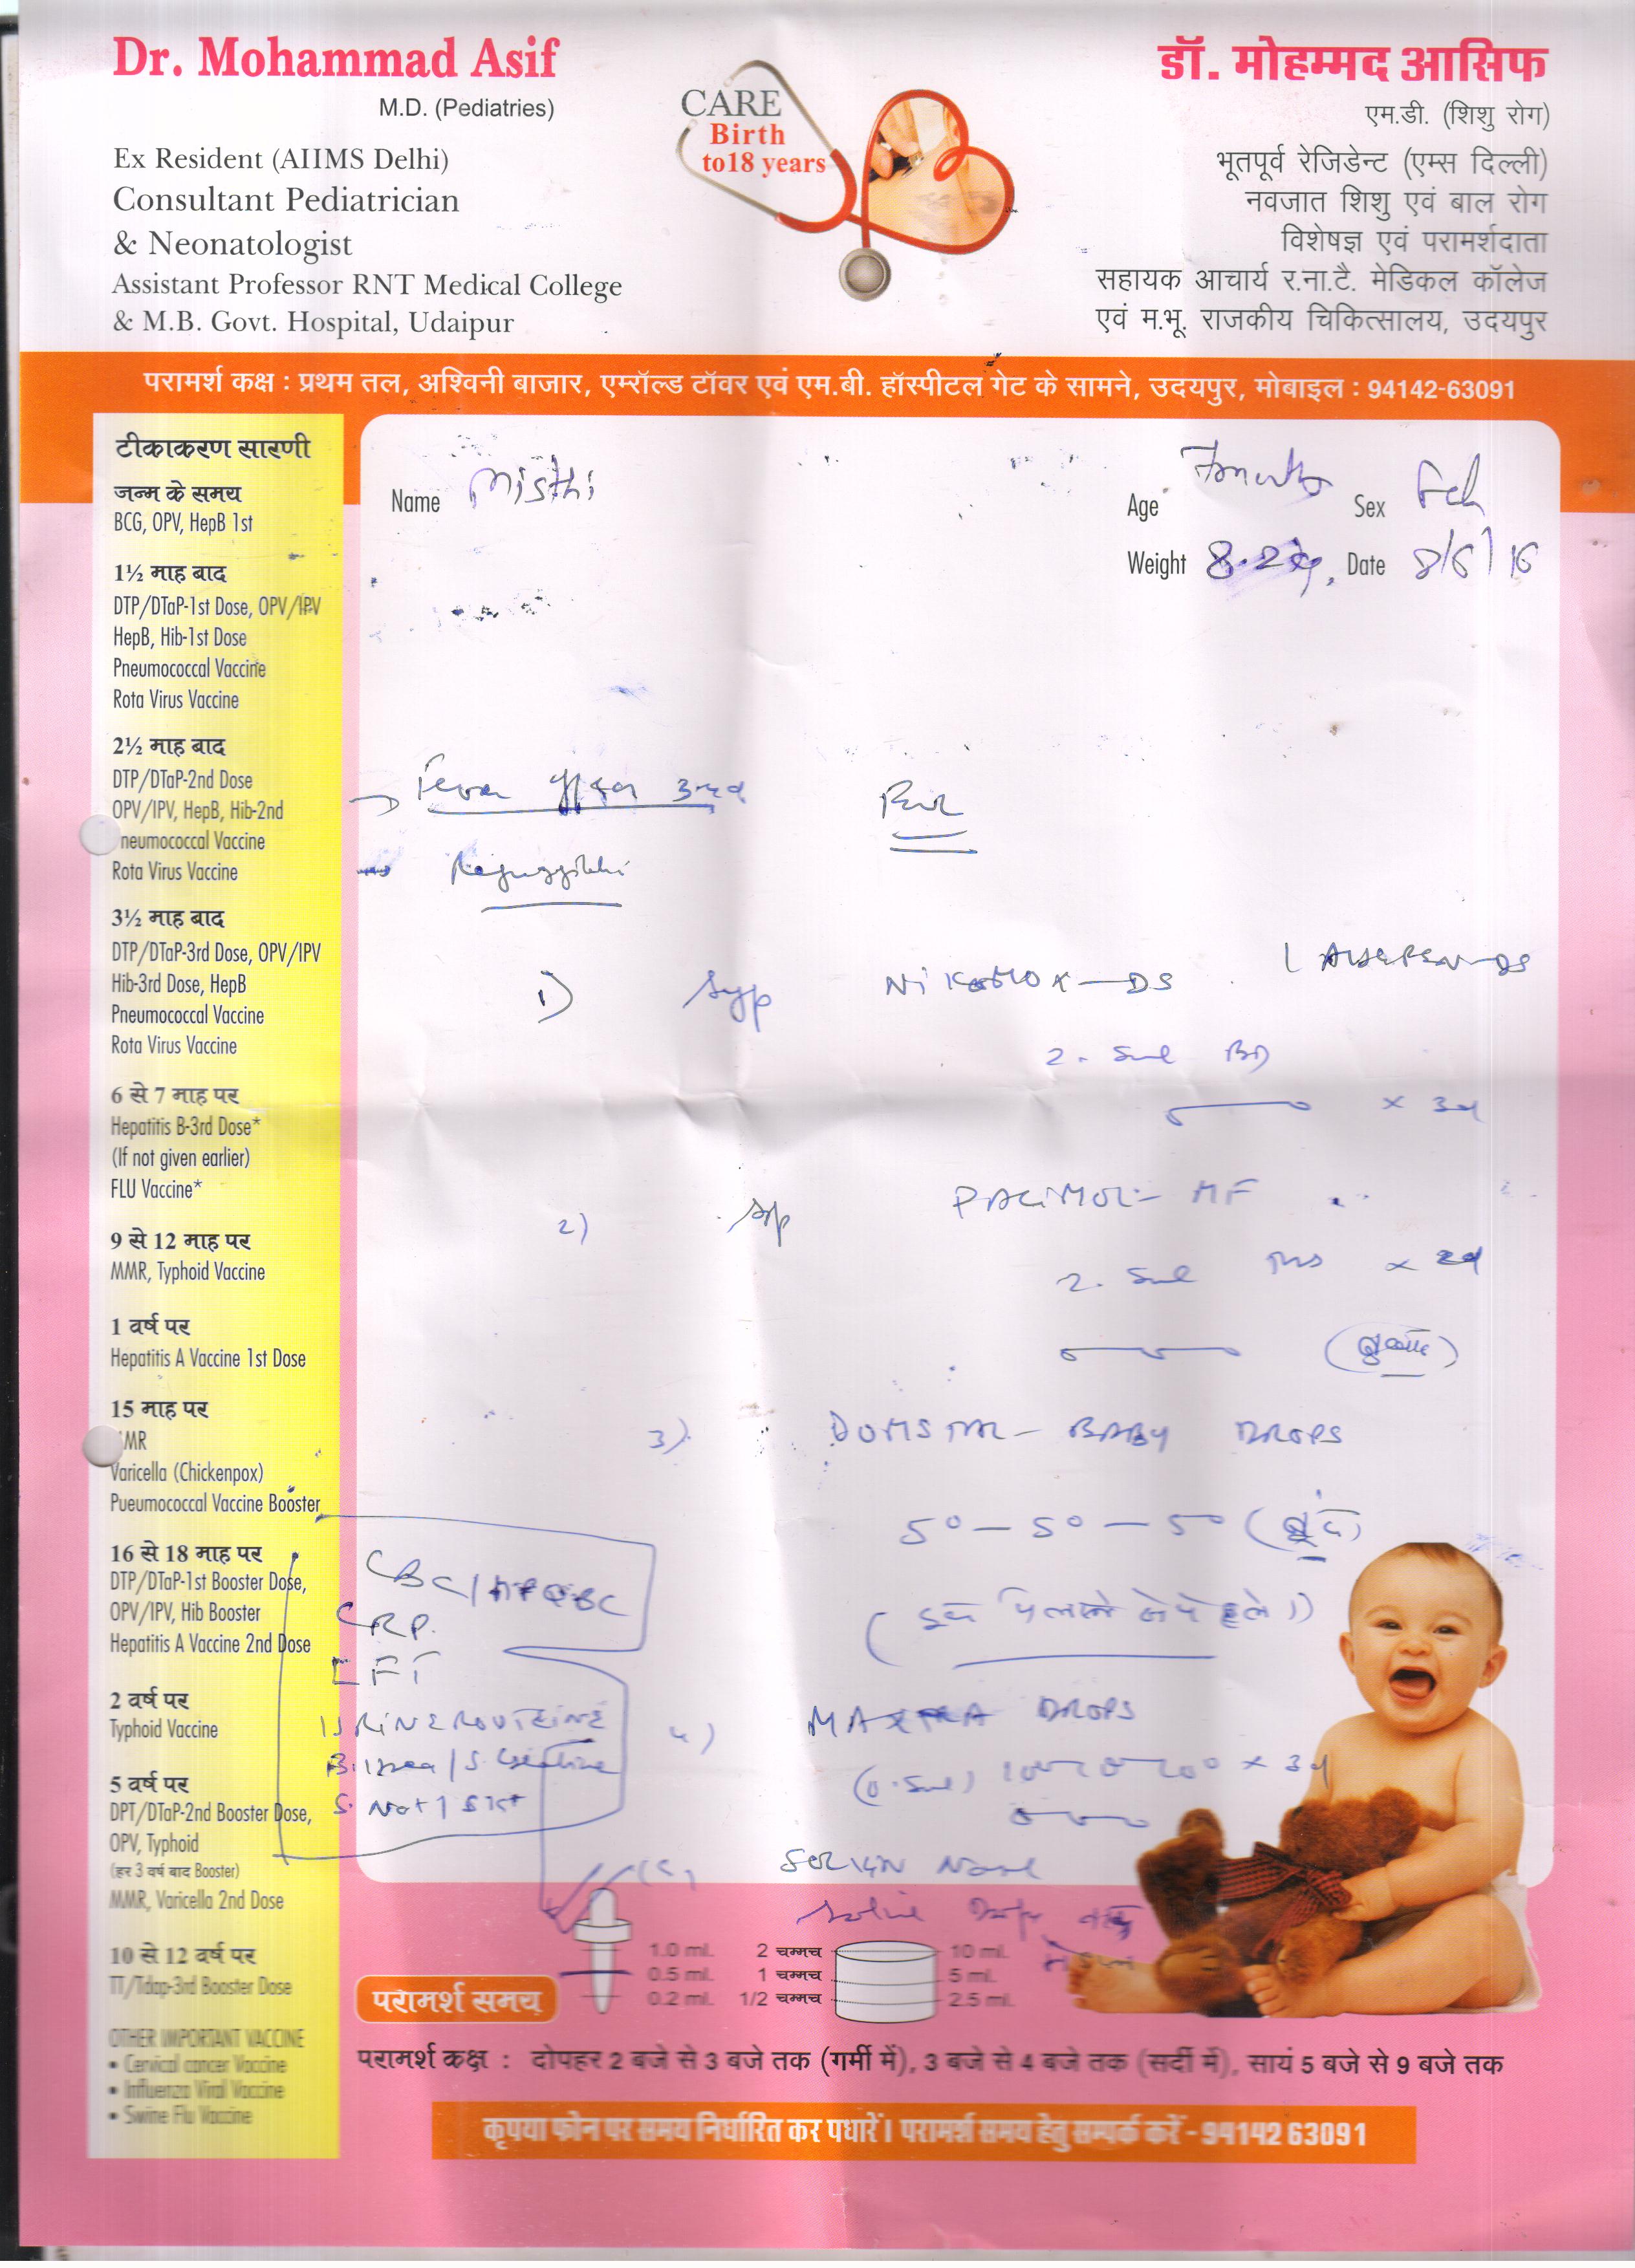 Dr. Mohammad Asif
M.D. (Pediatries)
Ex Resident (AIIMS Delhi)
Consultant Pediatrician
& Neonatologist
Assistant Professor RNT Medical College
& M.B. Govt. Hospital, Udaipur
CARE
Birth
to18 years
डॉ. मोहम्मद आसिफ
एम.डी. (शिशु रोग)
भूतपूर्व रेजिडेन्ट (एम्स दिल्ली)
नवजात शिशु एवं बाल रोग
विशेषज्ञ एवं परामर्शदाता
सहायक आचार्य र.ना.टै. मेडिकल कॉलेज
एवं म.भू. राजकीय चिकित्सालय, उदयपुर
परामर्श कक्ष : प्रथम तल, अश्विनी बाजार, एमरॉल्ड टॉवर एवं एम.बी. हॉस्पीटल गेट के सामने, उदयपुर, मोबाइल : 94142-63091
टीकाकरण सारणी
जन्म के समय
BCG, OPV, HepB 1st
1½ माह बाद
DTP/DTaP-1st Dose, OPV/IPV
HepB, Hib-1st Dose
Pneumococcal Vaccine
Rota Virus Vaccine
2½ माह बाद
DTP/DTaP-2nd Dose
OPV/IPV, HepB, Hib-2nd
neumococcal Vaccine
Rota Virus Vaccine
3½ माह बाद
DTP/DTaP-3rd Dose, OPV/IPV
Hib-3rd Dose, HepB
Pneumococcal Vaccine
Rota Virus Vaccine
6 से 7 माह पर
Hepatitis B-3rd Dose*
(If not given earlier)
FLU Vaccine*
9 से 12 माह पर
MMR, Typhoid Vaccine
1 वर्ष पर
Hepatitis A Vaccine 1st Dose
15 माह पर
MR
Varicella (Chickenpox)
Pueumococcal Vaccine Booster
16 से 18 माह पर
DTP/DTaP-1st Booster Dose,
OPV/IPV, Hib Booster
Hepatitis A Vaccine 2nd Dose
2 वर्ष पर
Typhoid Vaccine
5 वर्ष पर
DPT/DTaP-2nd Booster Dose,
OPV, Typhoid
(हर 3 वर्ष बाद Booster)
MMR, Varicella 2nd Dose
10 से 12 वर्ष पर
TT/Tdap-3rd Booster Dose
OTHER IMPORTANT VACCINE
• Cervical cancer Vaccine
• Influenza Viral Vaccine
• Swine Flu Vaccine
Name Misthi
Age 7 months Sex Fch
Weight 8.2 kg, Date 8/6/16
Fever 3rd
1) Syp NIKOMOX-DS
2.5ml BD
x 3d
2) Syp PACIMOL-MF
2.5ml TDS x 2d
3) DOMSTAL-BABY DROPS
5°-5°-5° (बूंद)
4) MAXTRA DROPS
(0.5ml) x 3d
CBC
CRP.
LFT
URINE ROUTINE
B. Urea / S. Creatinine
S. Na+ / S. K+
Saline Drops
1.0 ml.
0.5 ml.
0.2 ml.
2 चम्मच
1 चम्मच
1/2 चम्मच
10 ml.
5 ml.
2.5 ml.
परामर्श समय
परामर्श कक्ष : दोपहर 2 बजे से 3 बजे तक (गर्मी में), 3 बजे से 4 बजे तक (सर्दी में), सायं 5 बजे से 9 बजे तक
कृपया फोन पर समय निर्धारित कर पधारें। परामर्श समय हेतु सम्पर्क करें - 94142 63091